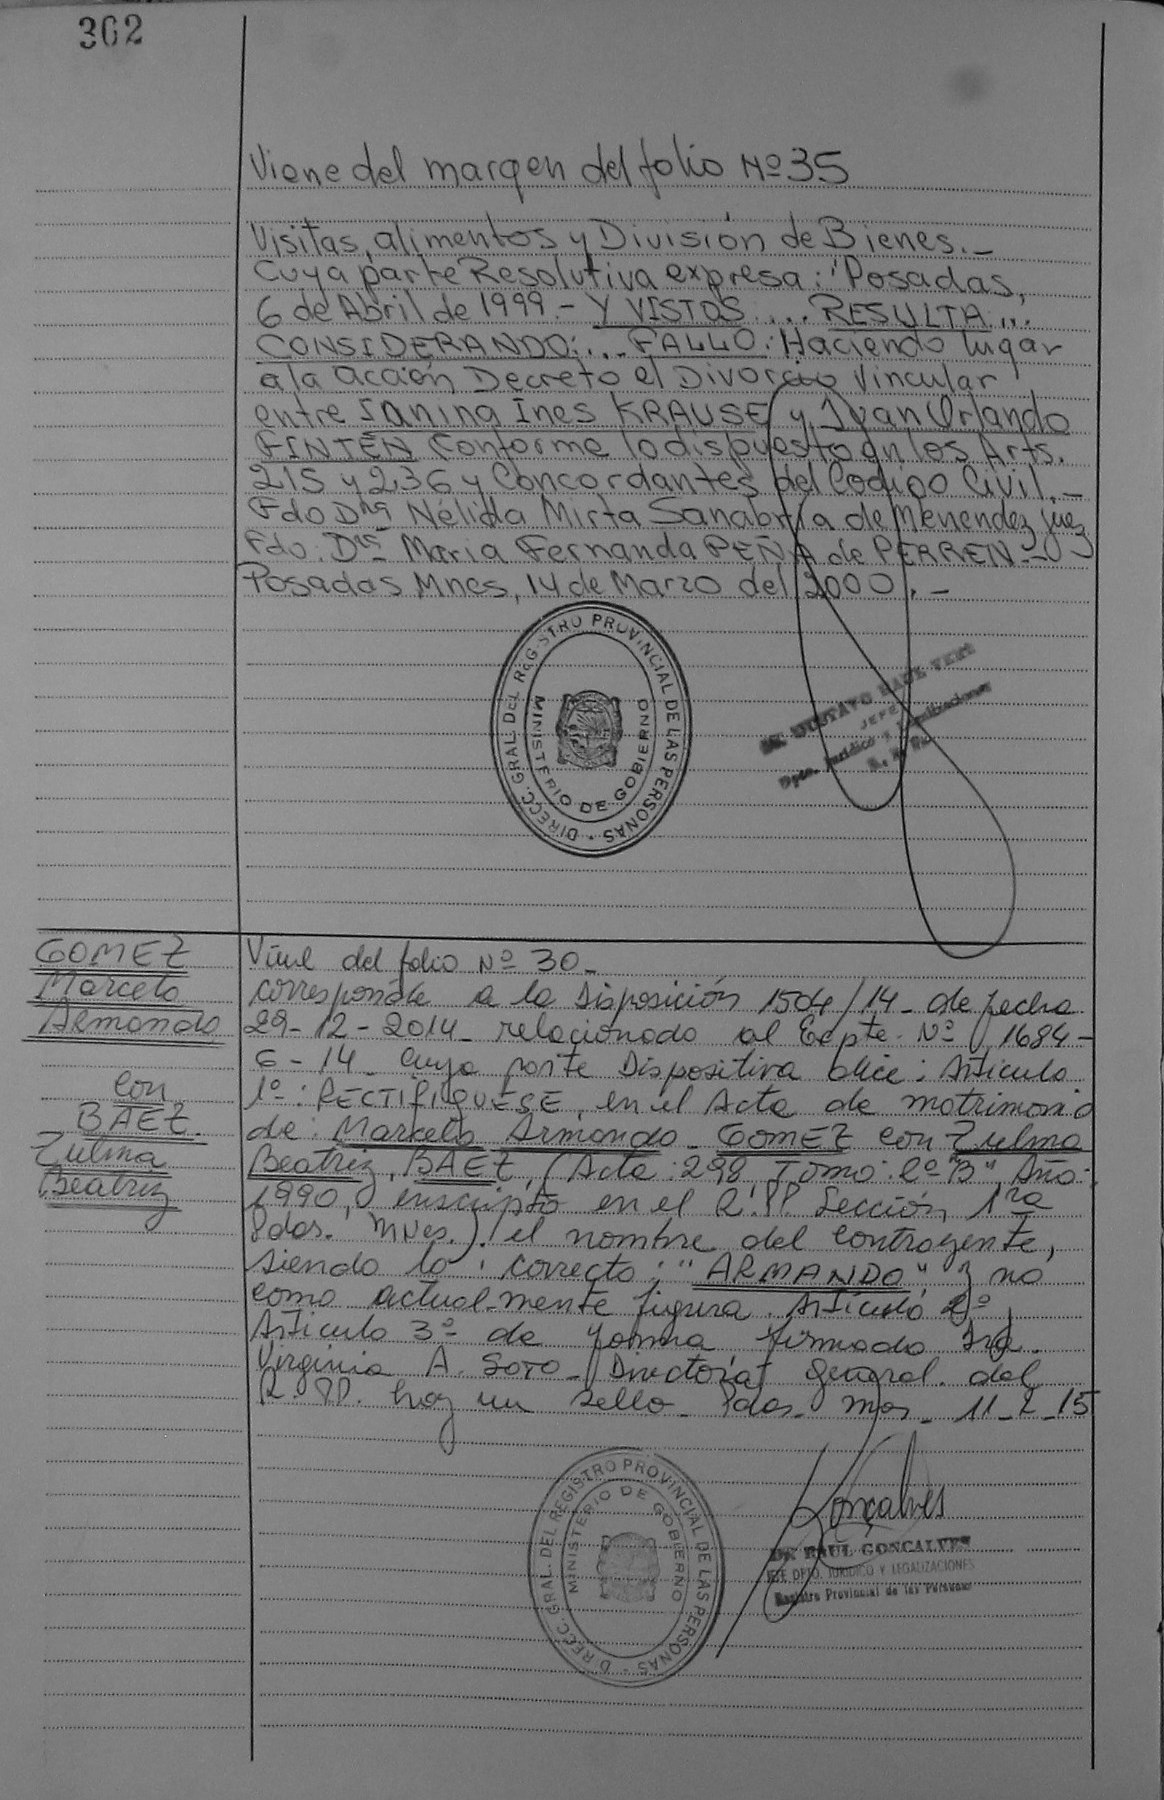 362
Viene del margen del folio Nº 35
Visitas, alimentos y División de Bienes.-
Cuya parte Resolutiva expresa: "Posadas,
6 de Abril de 1999.- Y VISTOS.... RESULTA...
CONSIDERANDO:... FALLO: Haciendo lugar
a la acción, Decreto el Divorcio Vincular
entre Janina Ines KRAUSE y Juan Orlando
FINTEN Conforme lo dispuesto en los Arts.
215 y 236 y Concordantes del Código Civil.-
Fdo Dra Nélida Mirta Sanabria de Menendez Juez
Fdo: Dra María Fernanda PEÑA de PERREN.-
Posadas Mnes, 14 de Marzo del 2000.-
DIRECC. GRAL. DEL REGISTRO PROVINCIAL DE LAS PERSONAS
MINISTERIO DE GOBIERNO
DR. GUSTAVO RAUL
JEFE
Dpto. Jurídico y Legalizaciones
GOMEZ
Marcelo
Armando
con
BAEZ
Zulma
Beatriz
Viene del folio Nº 30-
corresponde a la Disposición 1504/14- de fecha
29-12-2014- relacionado al Expte. Nº 1684-
G-14- Cuya parte Dispositiva dice: Artículo
1º: RECTIFIQUESE, en el Acta de matrimonio
de: Marcelo Armondo- GOMEZ con Zulma
Beatriz, BAEZ, (Acta: 298 Tomo: 2º "B", Año:
1990, inscripto en el R.PP. Sección 1ra
Pdas. Mnes.) el nombre del contrayente,
siendo lo correcto: "ARMANDO" y no
como actual-mente figura. Artículo 2º,
Artículo 3º de forma firmado
Virginia A. Soto- Directora general del
R.PP. hay un sello- Pdas- Mns- 11-2-15
DIRECC. GRAL. DEL REGISTRO PROVINCIAL DE LAS PERSONAS
MINISTERIO DE GOBIERNO
Goncalves
DR. RAUL GONCALVES
JEFE DPTO. JURIDICO Y LEGALIZACIONES
Registro Provincial de las Personas